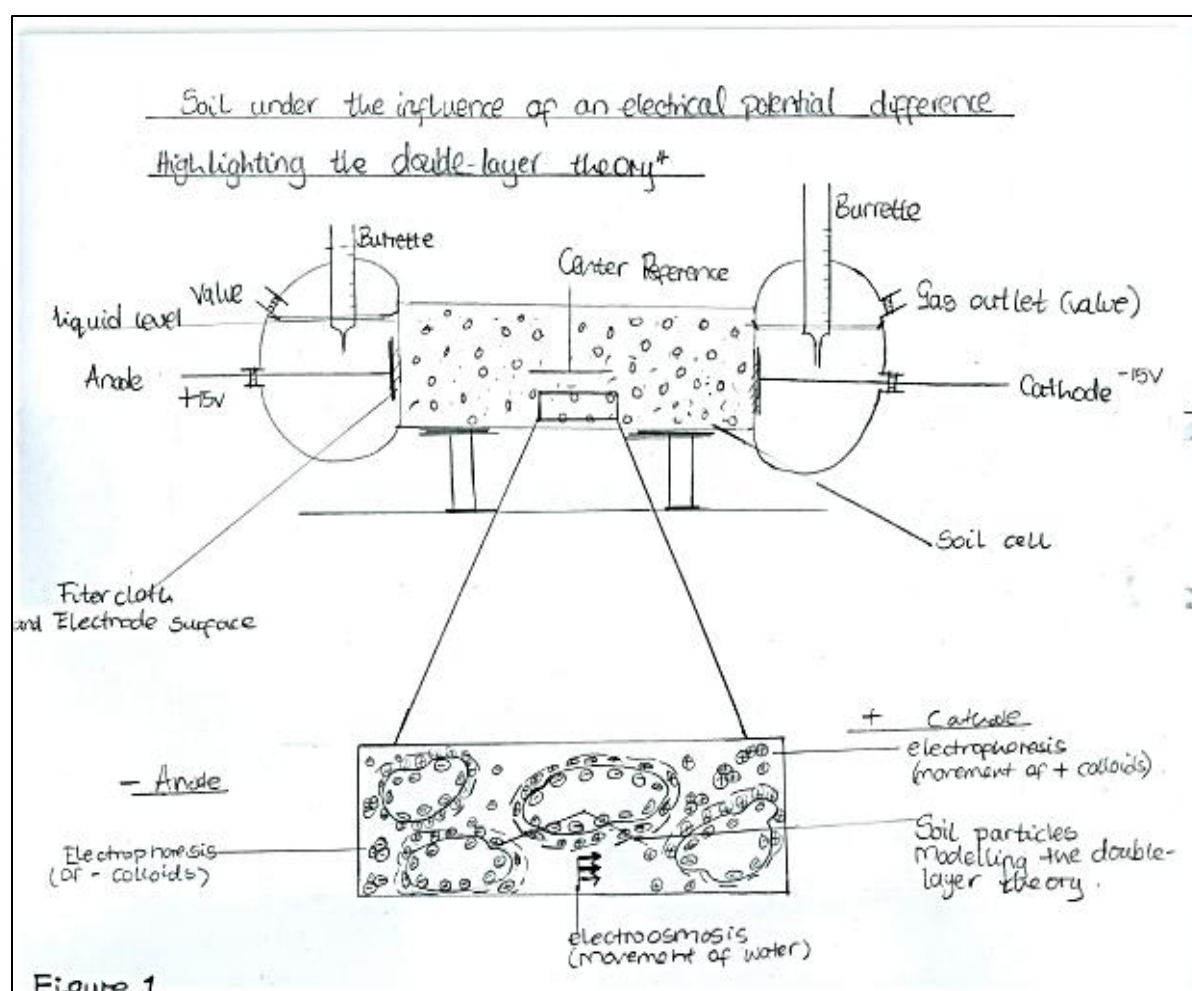 Soil under the influence of an electrical potential difference
Highlighting the double-layer theory*
Burrette
Burrette
Center Reference
Value
Gas outlet (value)
liquid level
Anode
+15V
Cathode -15V
Soil cell
Fiter cloth
and Electrode surface
+ Cathode
electrophoresis
(movement of + colloids)
- Anode
Electrophoresis
(of - colloids)
Soil particles
modelling the double-
layer theory.
electroosmosis
(movement of water)
Figure 1